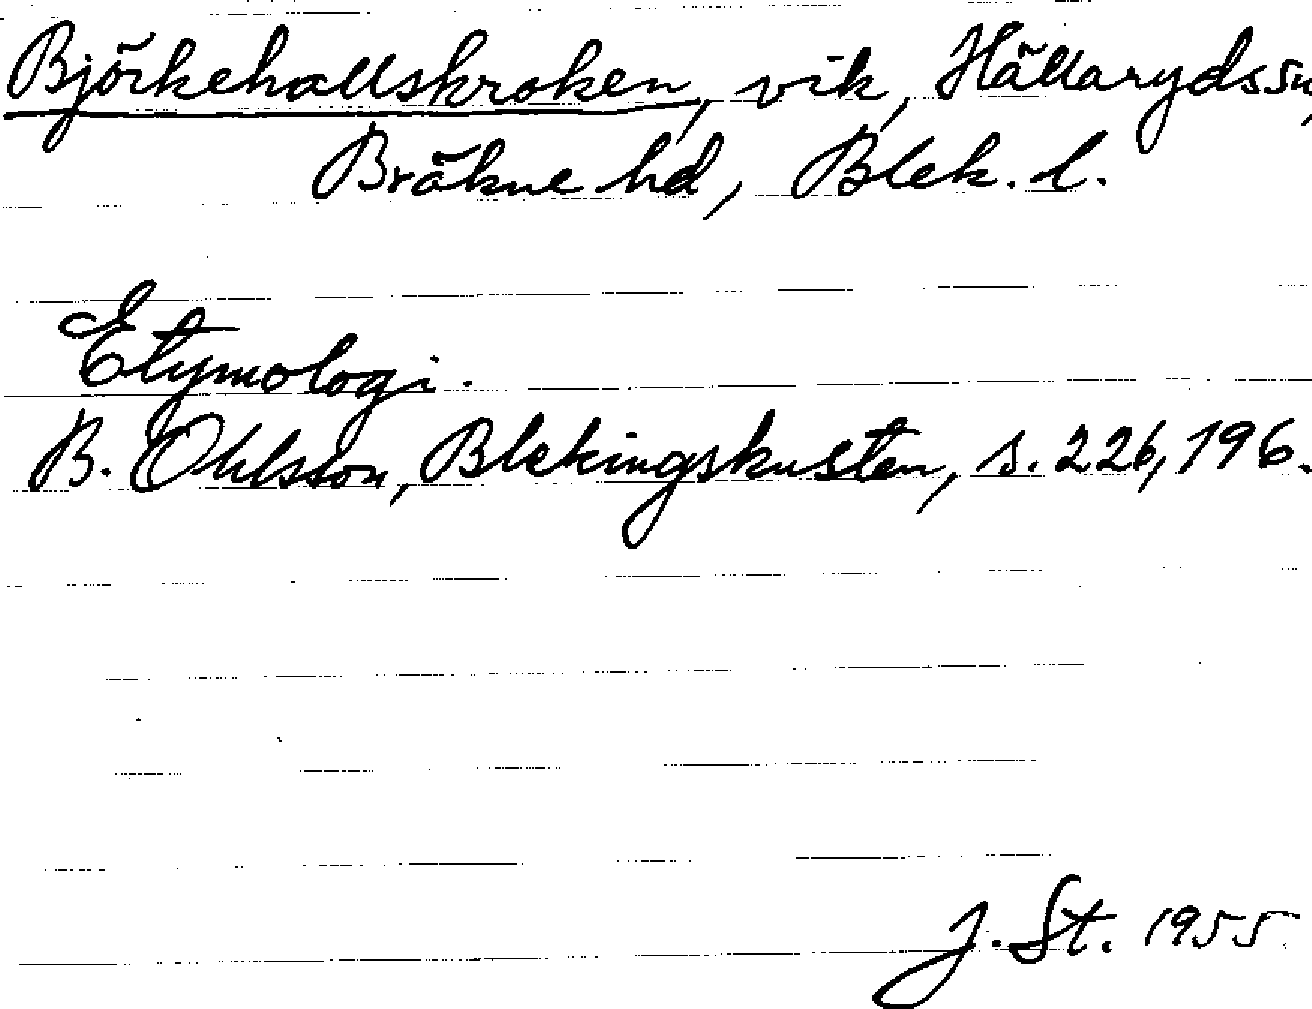 Björkehallskroken, vik, Hällarydssn,
Bräkne hd, Blek. l.
Etymologi.
B. Ohlsson, Blekingskusten, s. 226, 196.
J. St. 1955